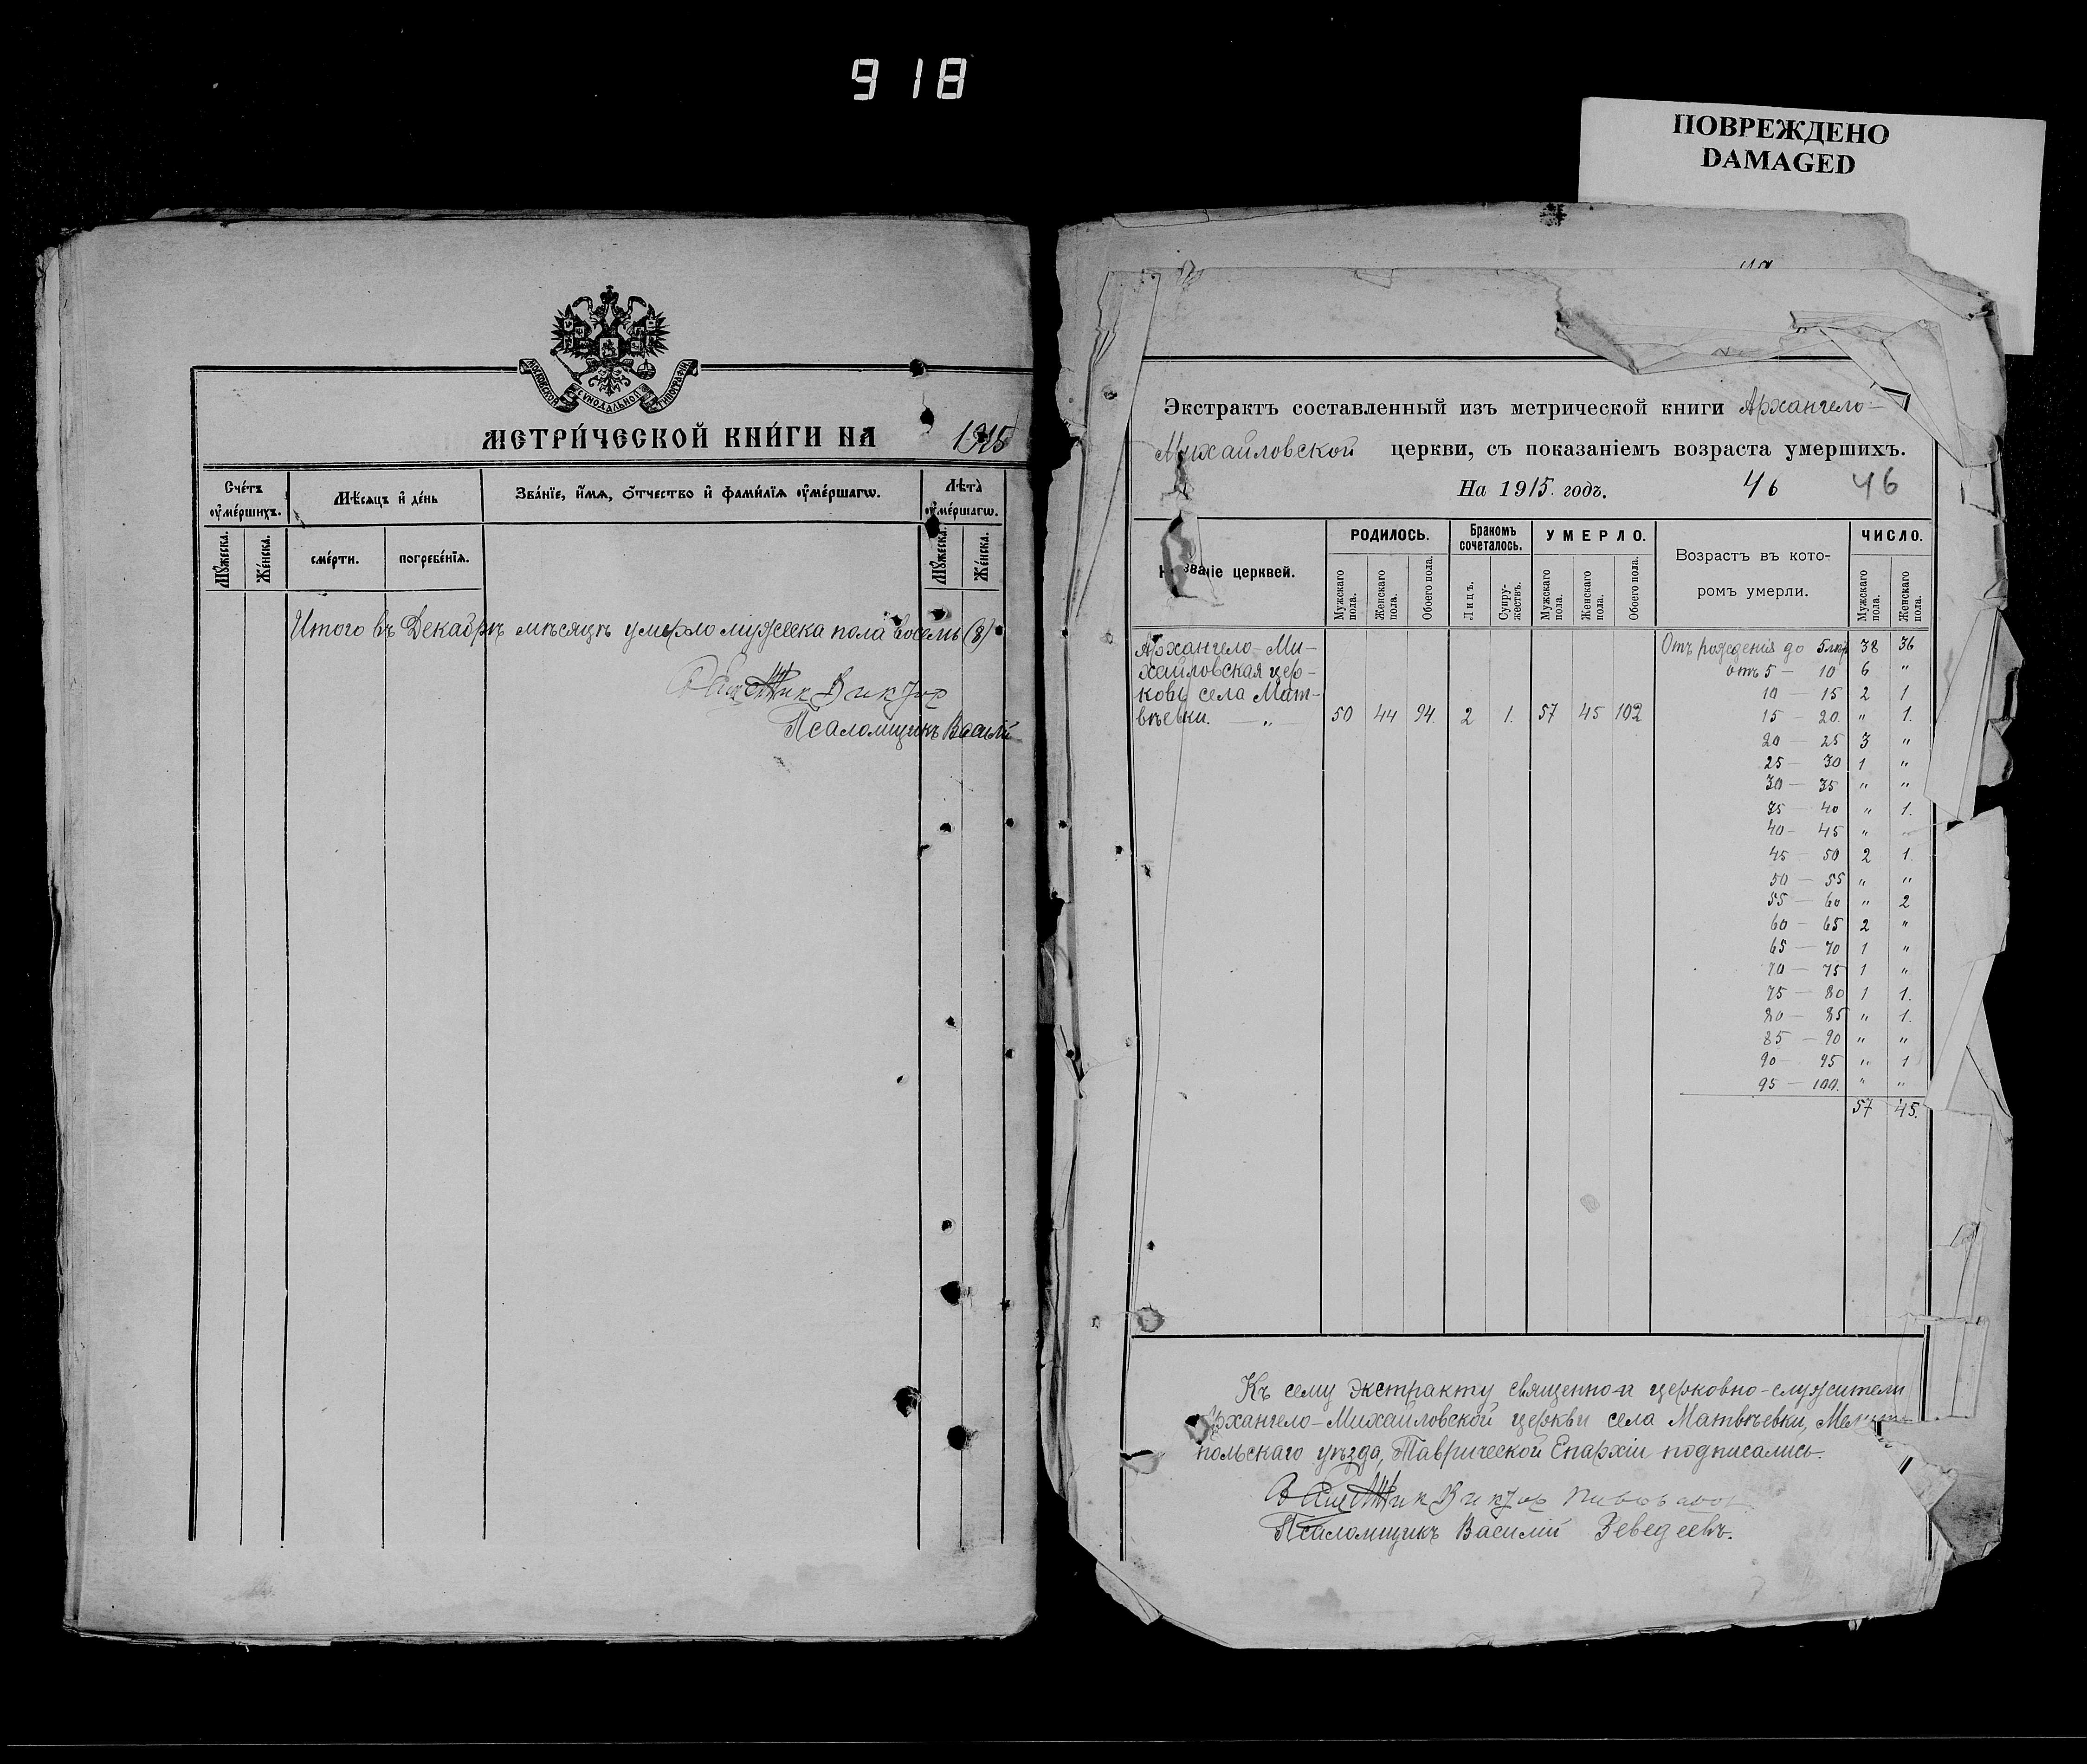 918
ПОВРЕЖДЕНО
DAMAGED
МОСКОВСКОЙ СѴНОДАЛЬНОЙ ТИПОГРАФІИ
МЕТРИ́ЧЕСКОЙ КНИ́ГИ НА 1915
Сче́тъ ᲂу҆ме́ршихъ.
Мѣ́сяцъ и҆ де́нь
Зва́нїе, и҆́мѧ, ѻ҆́тчество и҆ фами́лїѧ ᲂу҆ме́ршагѡ.
Лѣта̀ ᲂу҆ме́ршагѡ.
Мꙋ́жеска.
Же́нска.
сме́рти.
погребе́нїѧ.
Мꙋ́жеска.
Же́нска.
Итого въ Декабрѣ мѣсяцѣ умерло мужеска пола восемь (8)
Виктор
Псаломщикъ Василій
Экстрактъ составленный изъ метрической книги Архангело-
Михайловской церкви, съ показаніемъ возраста умершихъ.
На 1915 годъ. 46 46
Названіе церквей.
РОДИЛОСЬ.
Бракомъ сочеталось.
УМЕРЛО.
Возрастъ въ кото-
ромъ умерли.
ЧИСЛО.
Мужскаго пола.
Женскаго пола.
Обоего пола.
Лицъ.
Супружествъ.
Мужскаго пола.
Женскаго пола.
Обоего пола.
Мужскаго пола.
Женскаго пола.
Архангело-Ми-
хайловская цер-
ковь села Мат-
вѣевки. — „ — 50 44 94. 2 1. 57 45 102
Отъ рожденія до 5 лѣт 38 36
отъ 5 — 10 6 "
10 — 15 2 1
15 — 20. " 1.
20 — 25 3 "
25 — 30 1 "
30 — 35 " "
35 — 40 " 1.
40 — 45 " "
45 — 50 2 1.
50 — 55 " "
55 — 60 " 2
60 — 65 2 "
65 — 70 1 "
70 — 75 1 "
75 — 80 1 1.
80 — 85 " 1.
85 — 90 " "
90 — 95 " 1
95 — 100. " "
57 45.
Къ сему экстракту священно-и церковно-служители
Архангело-Михайловской церкви села Матвѣевки, Мелито-
польскаго уѣзда, Таврической Епархіи подписались.
Виктор
Псаломщикъ Василій Зеведеевъ.